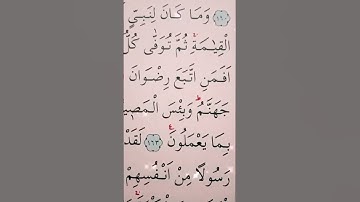 ﴿١٦٠﴾ وَمَا كَانَ لِنَبِيٍّ
الْقِيٰمَةِ ثُمَّ تُوَفّٰى كُلُّ
اَفَمَنِ اتَّبَعَ رِضْوَانَ
جَهَنَّمُ وَبِئْسَ الْمَصِيرُ
بِمَا يَعْمَلُونَ ﴿١٦٣﴾ لَقَدْ
رَسُولًا مِنْ اَنْفُسِهِمْ